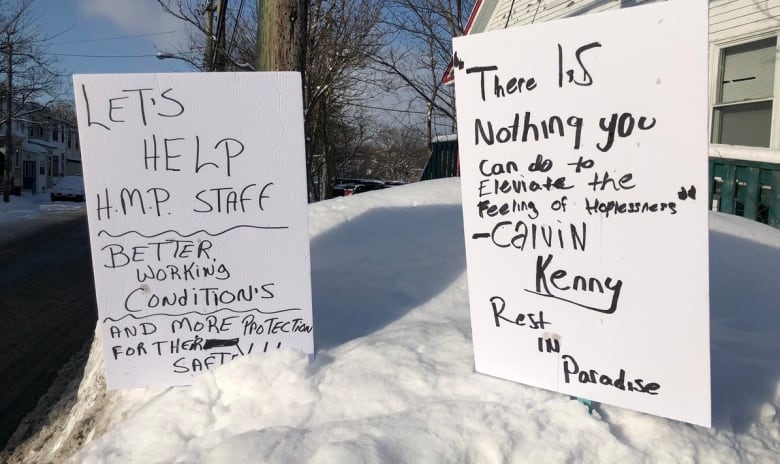 LET'S
HELP
H.M.P. STAFF
BETTER
WORKING
CONDITION'S
AND MORE PROTECTION
FOR THER
SAFTEY!!!
"There IS
Nothing you
can do to
Eleviate the
Feeling of Hoplessness"
-CALVIN
Kenny
Rest
IN
Paradise